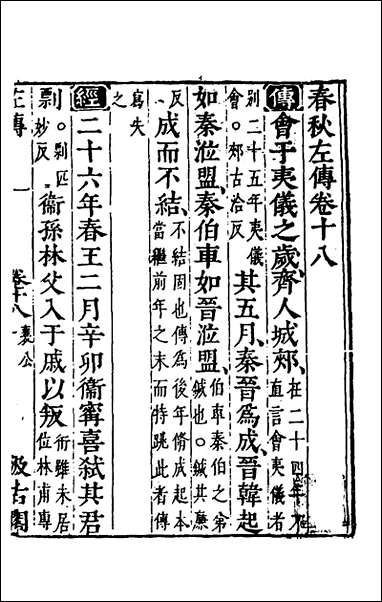 春秋左傳卷十八
傳會于夷儀之歲齊人城郟在二十四年不直言會夷儀者
別二十五年夷儀會。郟古洽反其五月秦晉爲成晉韓起
如秦涖盟秦伯車如晉涖盟伯車秦伯之弟鍼也。鍼其廉
反成而不結不結固也傳爲後年脩成起本當繼前年之末而特跳此者傳
寫失之
經二十六年春王二月辛卯衞甯喜弑其君
剽。剽匹妙反衞孫林父入于戚以叛衎雖未居位林甫專
左傳 卷十八 襄公 汲古閣